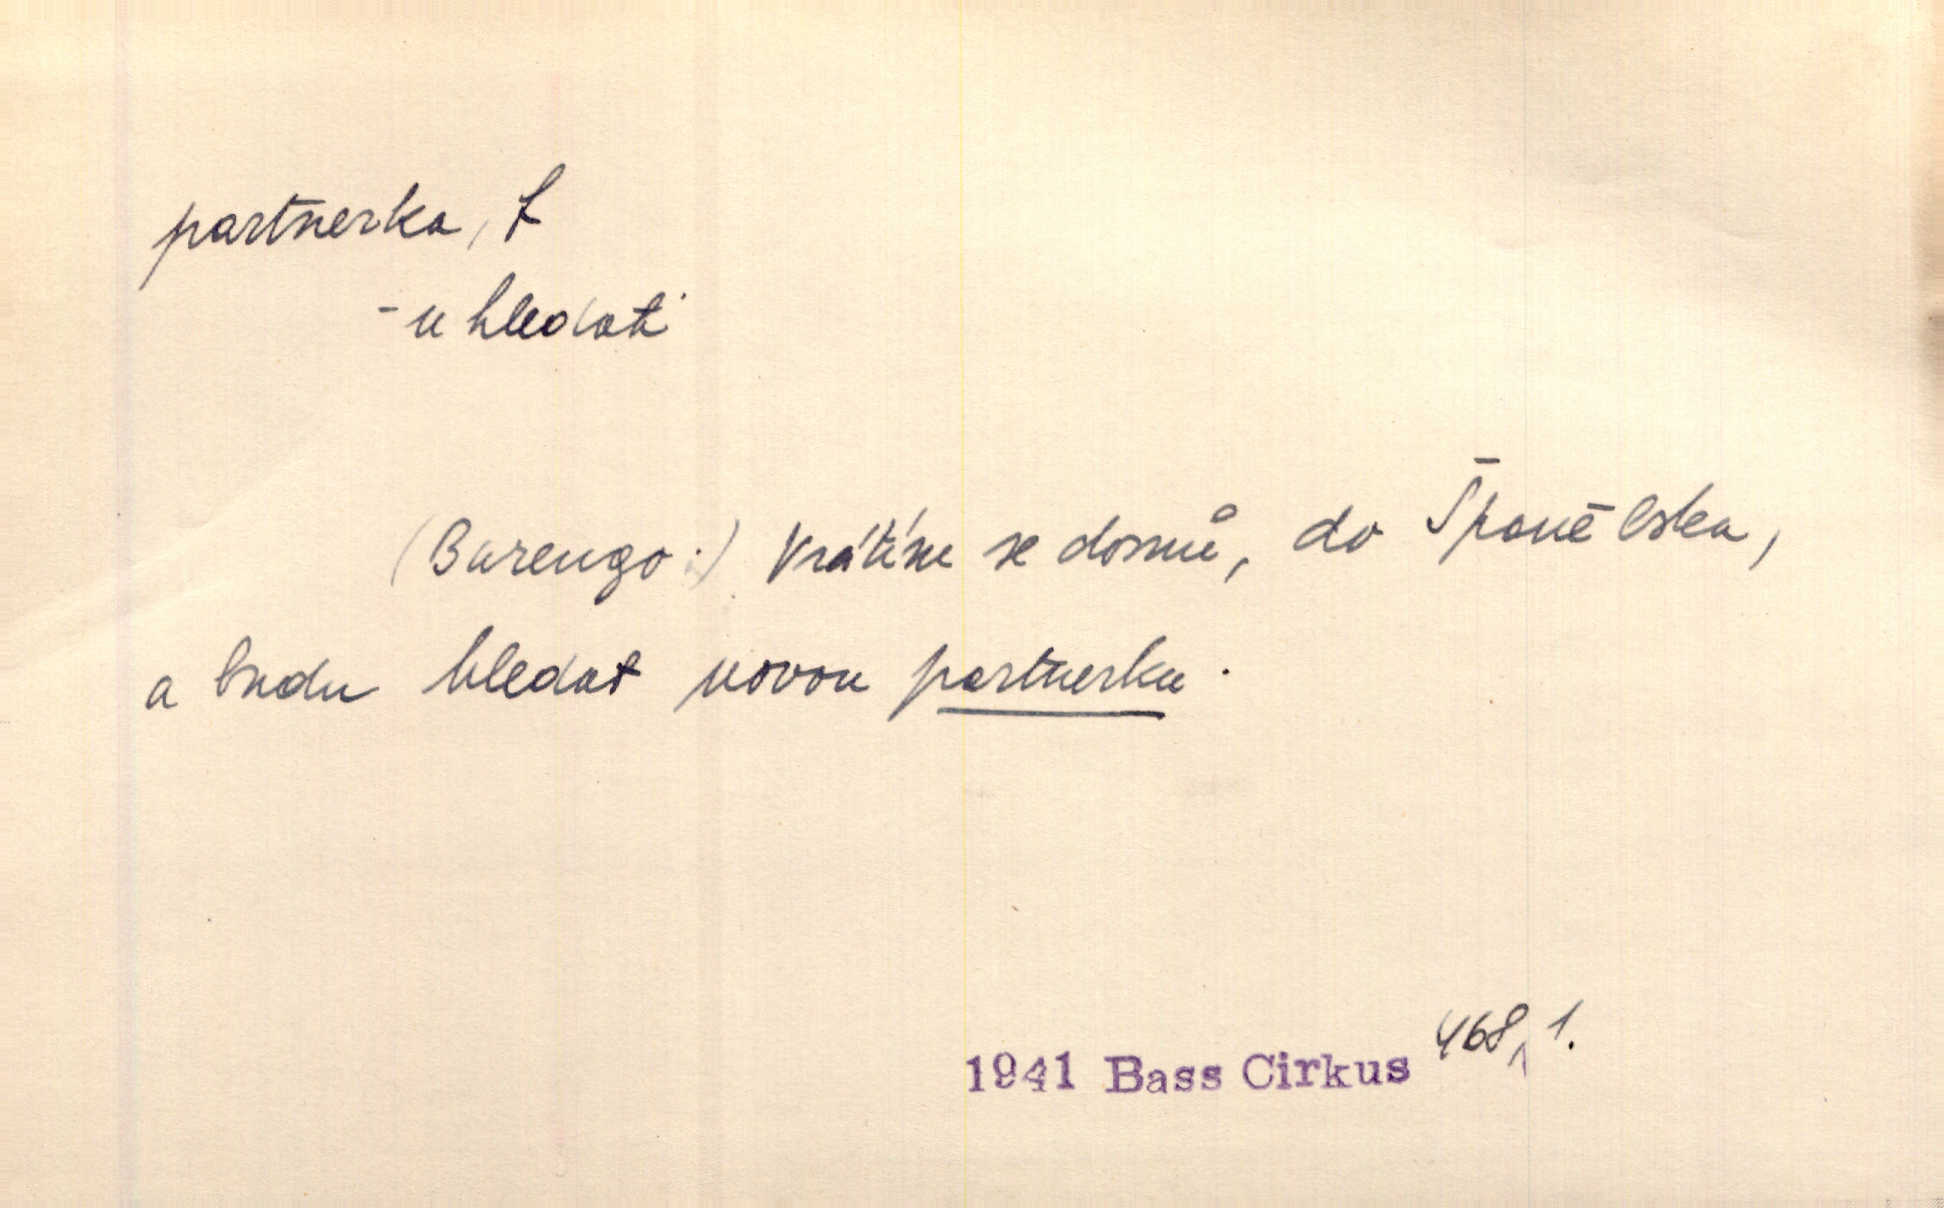 partnerka, f
-u hledati
(Barengo:) Vrátím se domů, do Španělska,
a budu hledat novou partnerku.
1941 Bass Cirkus 468, 1.